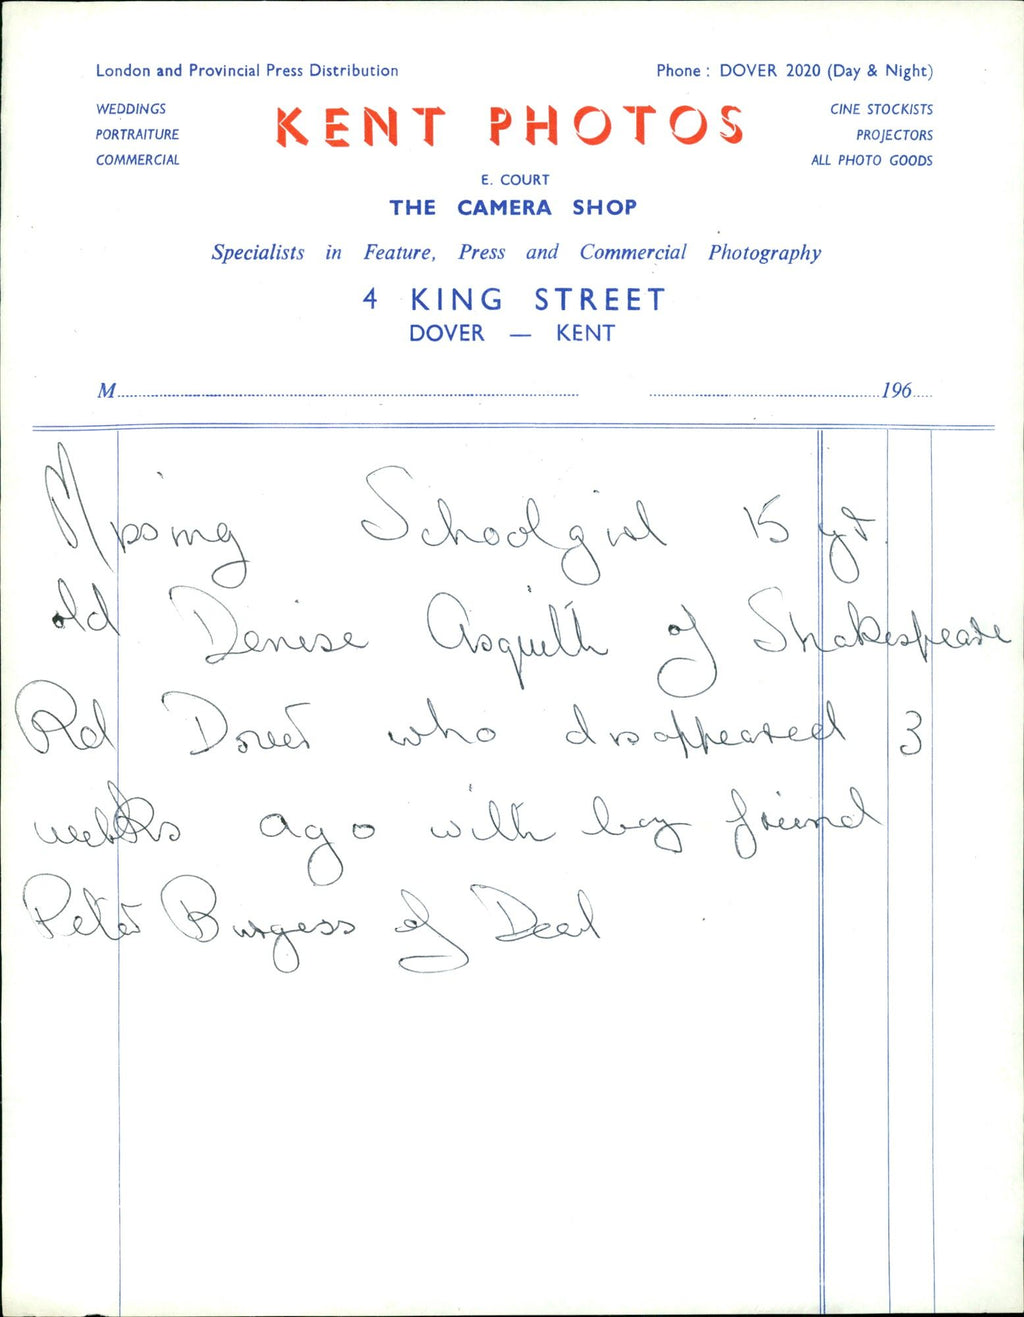 London and Provincial Press Distribution
Phone : DOVER 2020 (Day & Night)
WEDDINGS
PORTRAITURE
COMMERCIAL
KENT PHOTOS
CINE STOCKISTS
PROJECTORS
ALL PHOTO GOODS
E. COURT
THE CAMERA SHOP
Specialists in Feature, Press and Commercial Photography
4 KING STREET
DOVER — KENT
M.......... ..........196.....
Missing Schoolgirl 15 yr
old Denise Asquith of Shakespeare
Rd Dover who disappeared 3
weeks ago with boy friend
Peter Burgess of Deal